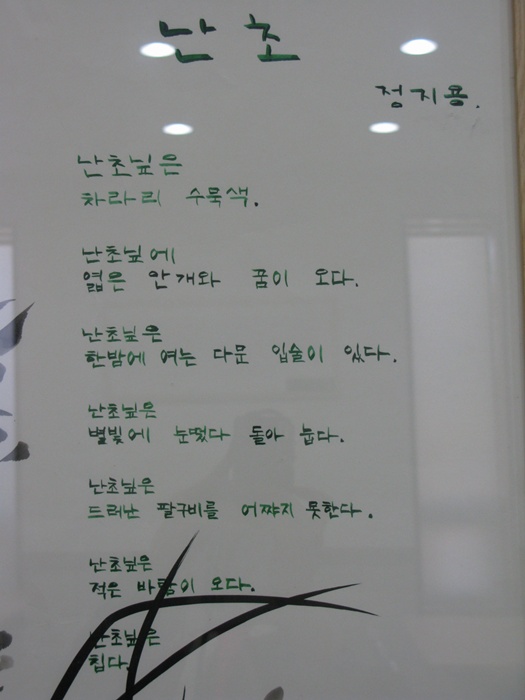 난초
정지용.
난초닢은
차라리 수묵색.
난초닢에
엷은 안개와 꿈이 오다.
난초닢은
한밤에 여는 다문 입술이 있다.
난초닢은
별빛에 눈떴다 돌아 눕다.
난초닢은
드러난 팔구비를 어쨔지 못한다.
난초닢은
적은 바람이 오다.
난초닢은
칩다.